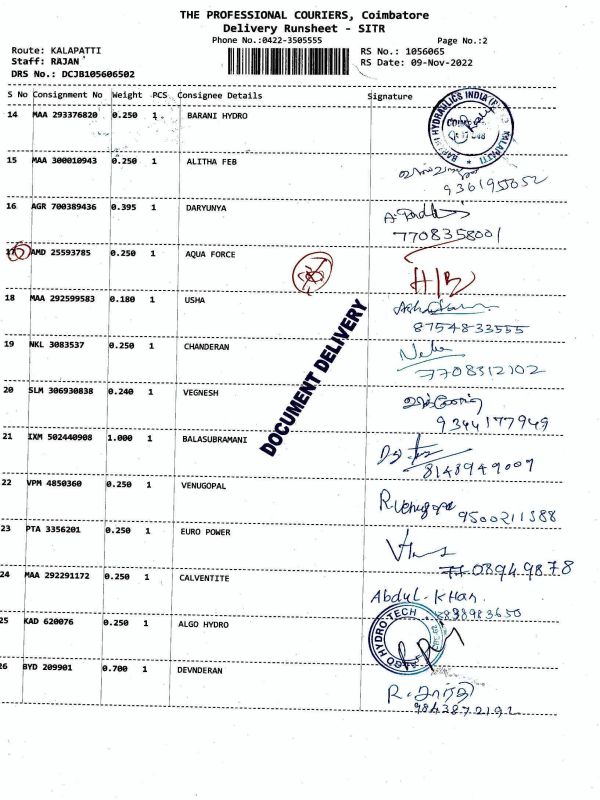 THE PROFESSIONAL COURIERS, Coimbatore
Delivery Runsheet - SITR
Phone No.:0422-3505555
Page No.:2
Route: KALAPATTI
RS No.: 1056065
Staff: RAJAN
RS Date: 09-Nov-2022
DRS No.: DCJB105606502
S No Consignment No Weight PCS Consignee Details Signature
14 MAA 293376820 0.250 1 BARANI HYDRO
HYDRAULICS INDIA KALAPATTI
15 MAA 300010943 0.250 1 ALITHA FEB
9361955052
16 AGR 700389436 0.395 1 DARYUNYA
7708358001
17 AMD 25593785 0.250 1 AQUA FORCE
18 MAA 292599583 0.180 1 USHA
8754833555
19 NKL 3083537 0.250 1 CHANDERAN
7708312102
DOCUMENT DELIVERY
20 SLM 306930838 0.240 1 VEGNESH
9344177949
21 IXM 502440908 1.000 1 BALASUBRAMANI
8148949009
22 VPM 4850360 0.250 1 VENUGOPAL
9500211388
23 PTA 3356201 0.250 1 EURO POWER
24 MAA 292291172 0.250 1 CALVENTITE
Abdul-Khan
25 KAD 620076 0.250 1 ALGO HYDRO
ALGO HYDRO-TECH
26 BYD 209901 0.700 1 DEVNDERAN
9843872192